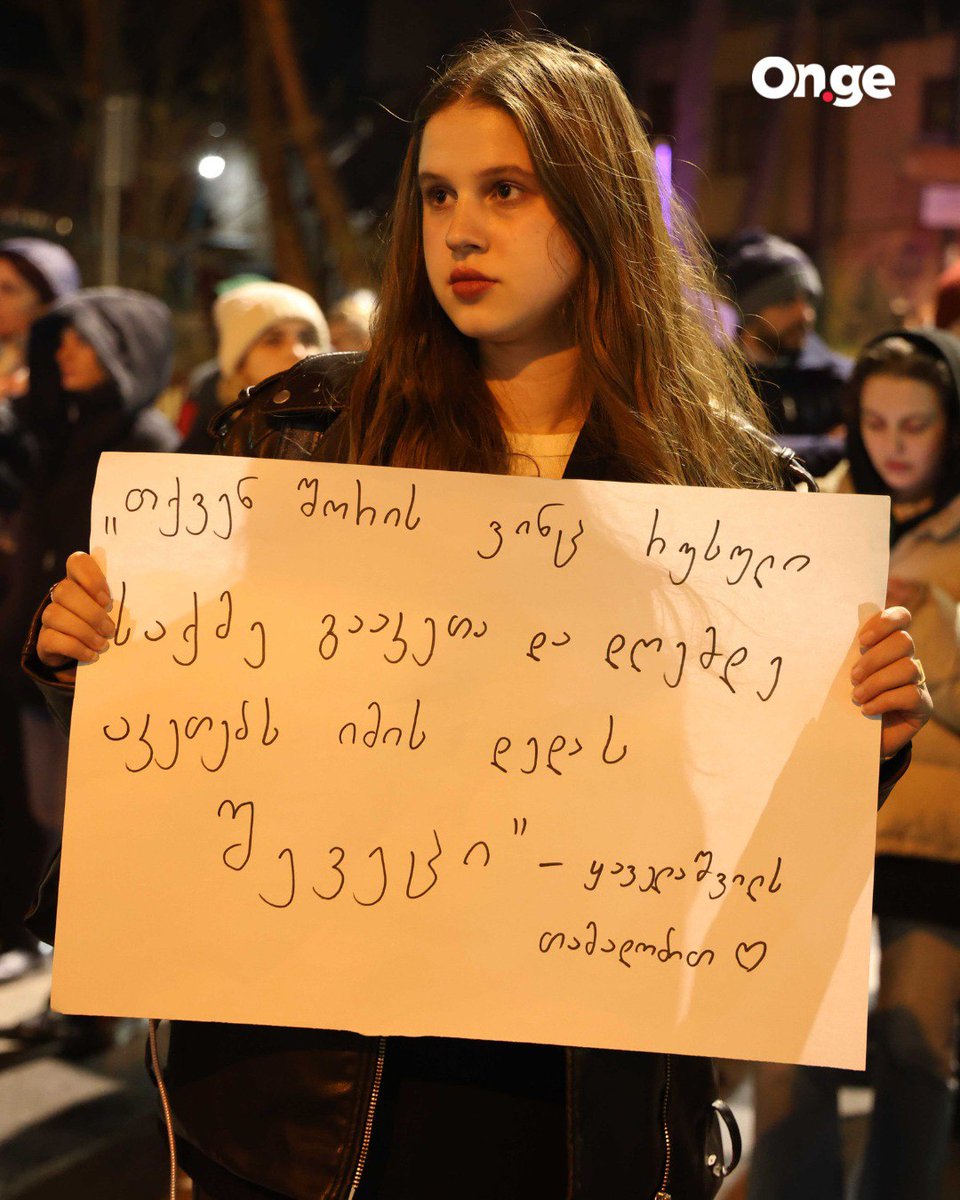 On.ge
„თქვენ შორის ვინც რუსული
საქმე გააკეთა და დღემდე
აკეთებს იმის დედას
შევეცი" - ყაველაშვილს
თამადობით ♡